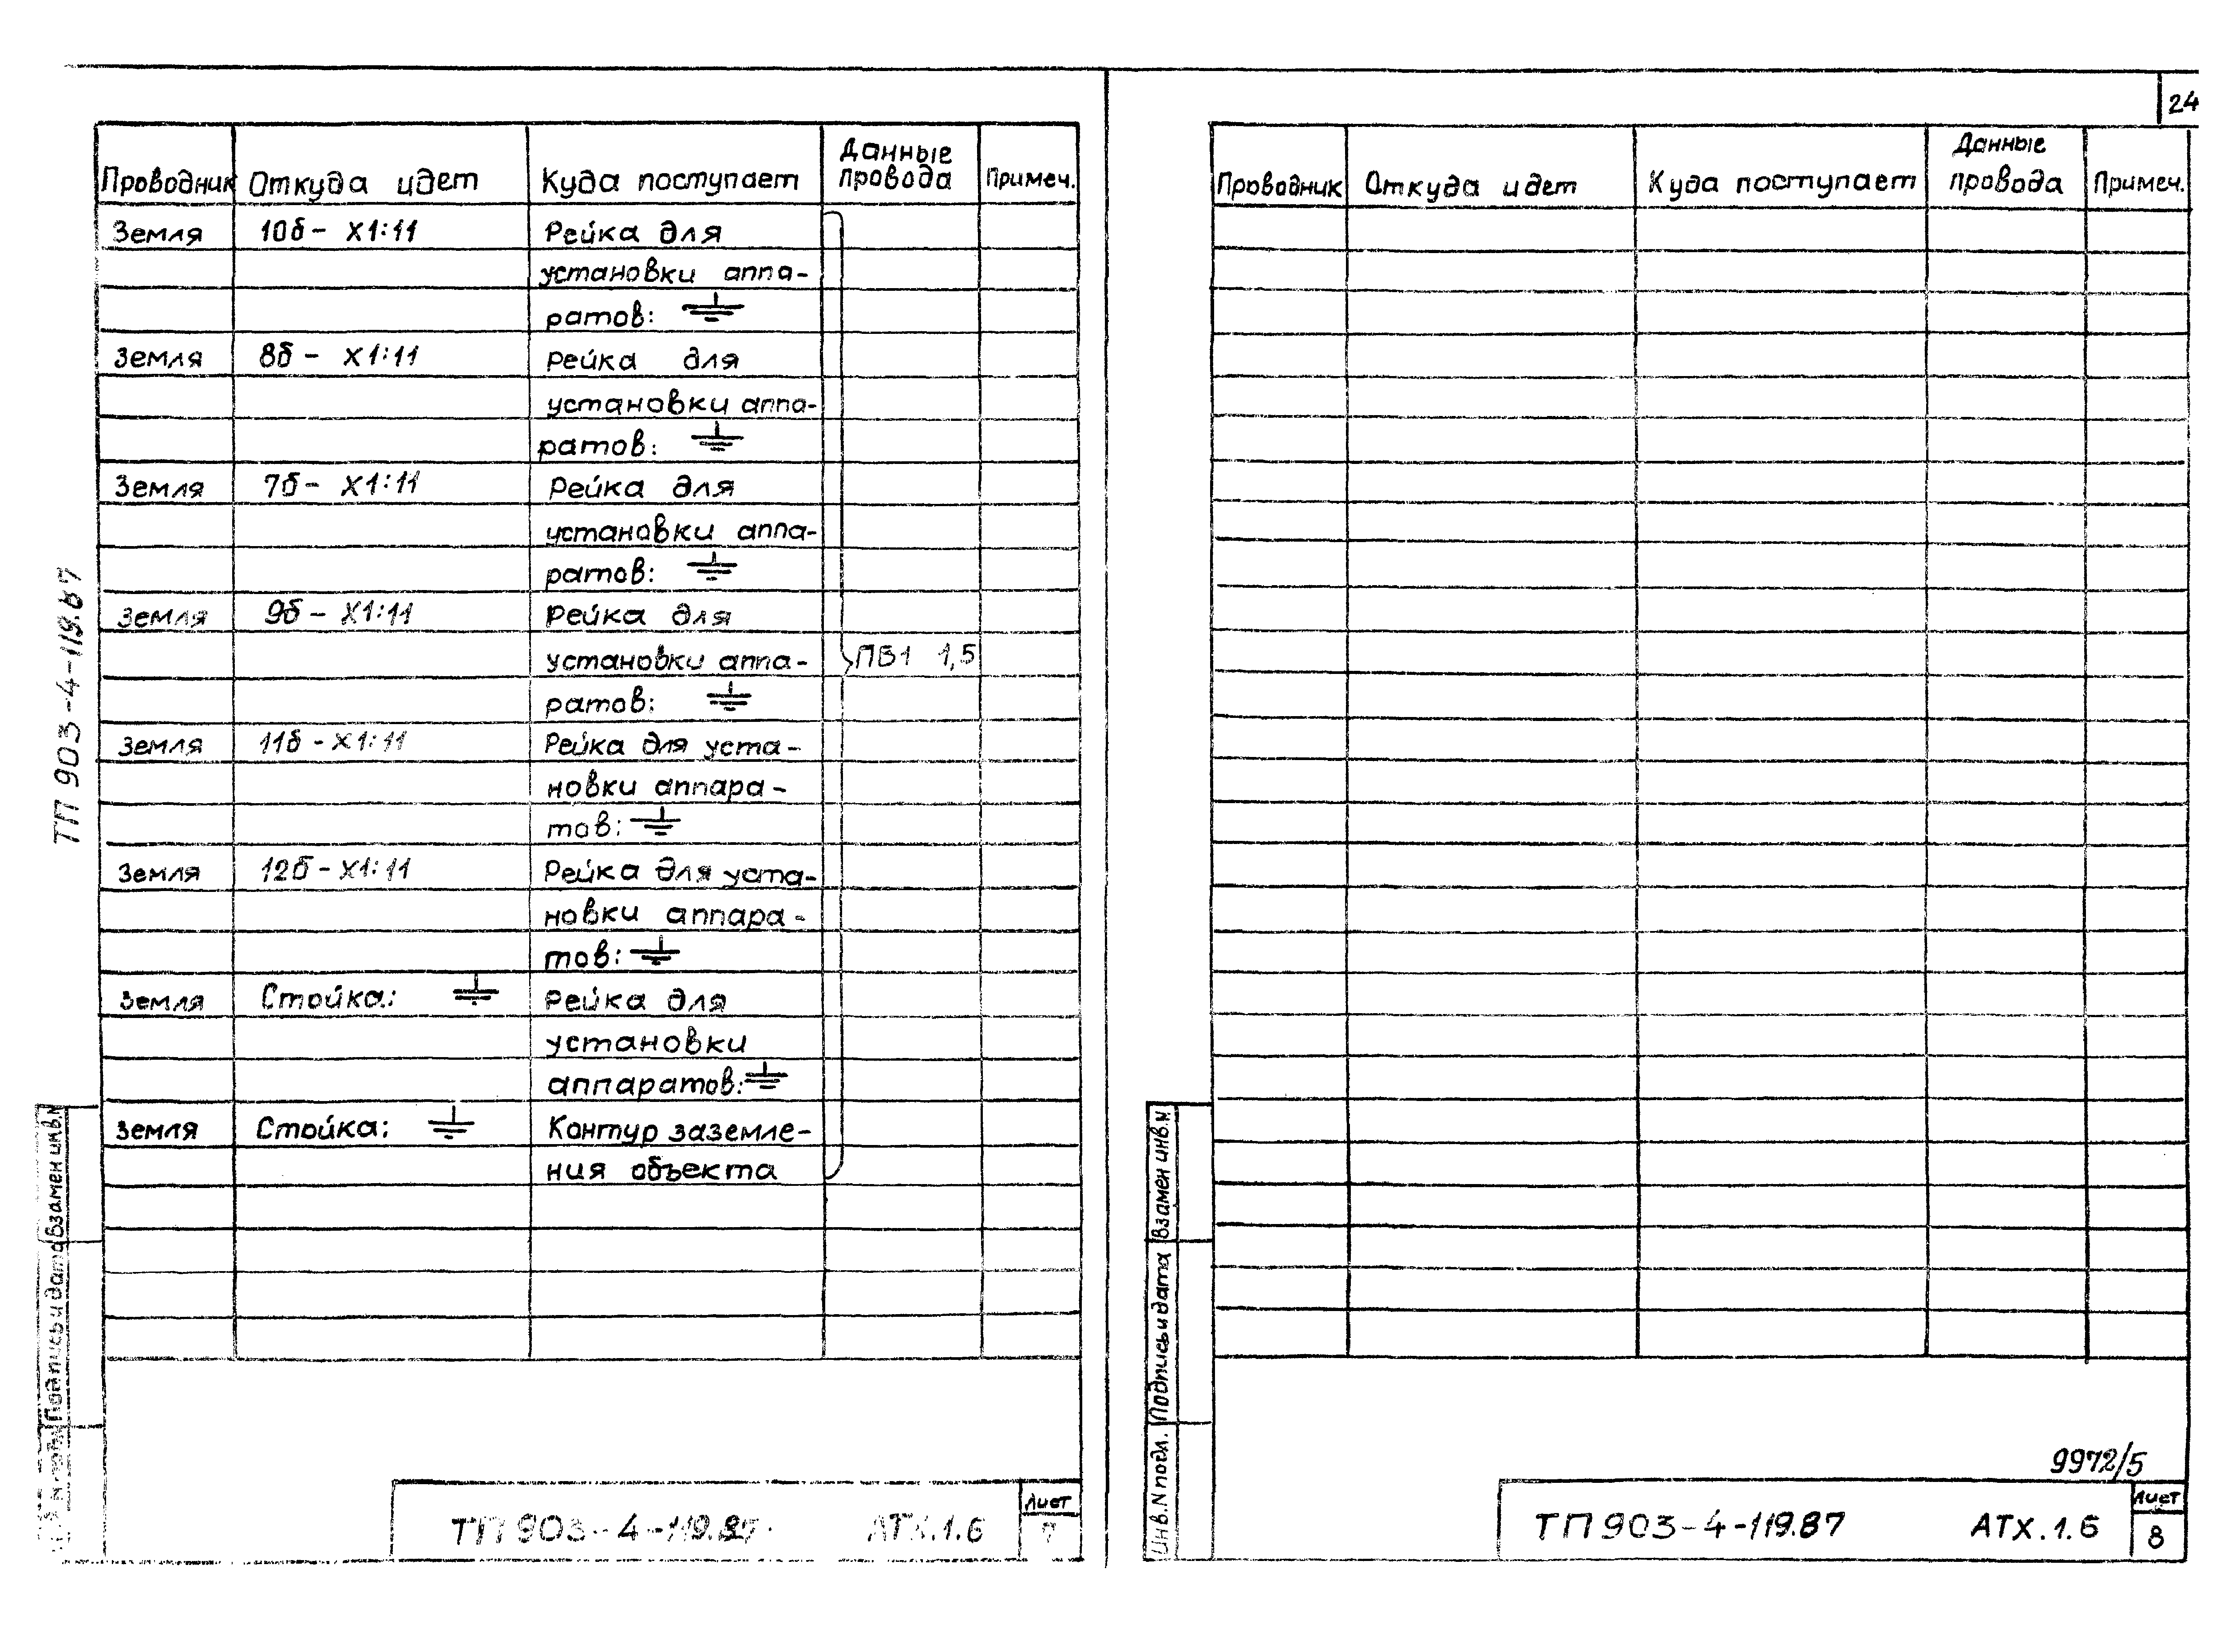 24
Проводник Откуда идет Куда поступает Данные провода Примеч.
Земля 10б - X1:11 Рейка для
установки аппа-
ратов: ⏚
Земля 8б - X1:11 Рейка для
установки аппа-
ратов: ⏚
Земля 7б - X1:11 Рейка для
установки аппа-
ратов: ⏚
Земля 9б - X1:11 Рейка для
установки аппа- ПВ1 1,5
ратов: ⏚
Земля 11б - X1:11 Рейка для уста-
новки аппара-
тов: ⏚
Земля 12б - X1:11 Рейка для уста-
новки аппара-
тов: ⏚
Земля Стойка: ⏚ Рейка для
установки
аппаратов: ⏚
Земля Стойка: ⏚ Контур заземле-
ния объекта
ТП 903-4-119.87
Взамен инв.N
Подпись и дата
ТП 903-4-119.87 АТХ.1.6
Лист
7
Проводник Откуда идет Куда поступает Данные провода Примеч.
Взамен инв.N
Подпись и дата
Инв.N подл.
9972/5
ТП 903-4-119.87 АТХ.1.6
Лист
8